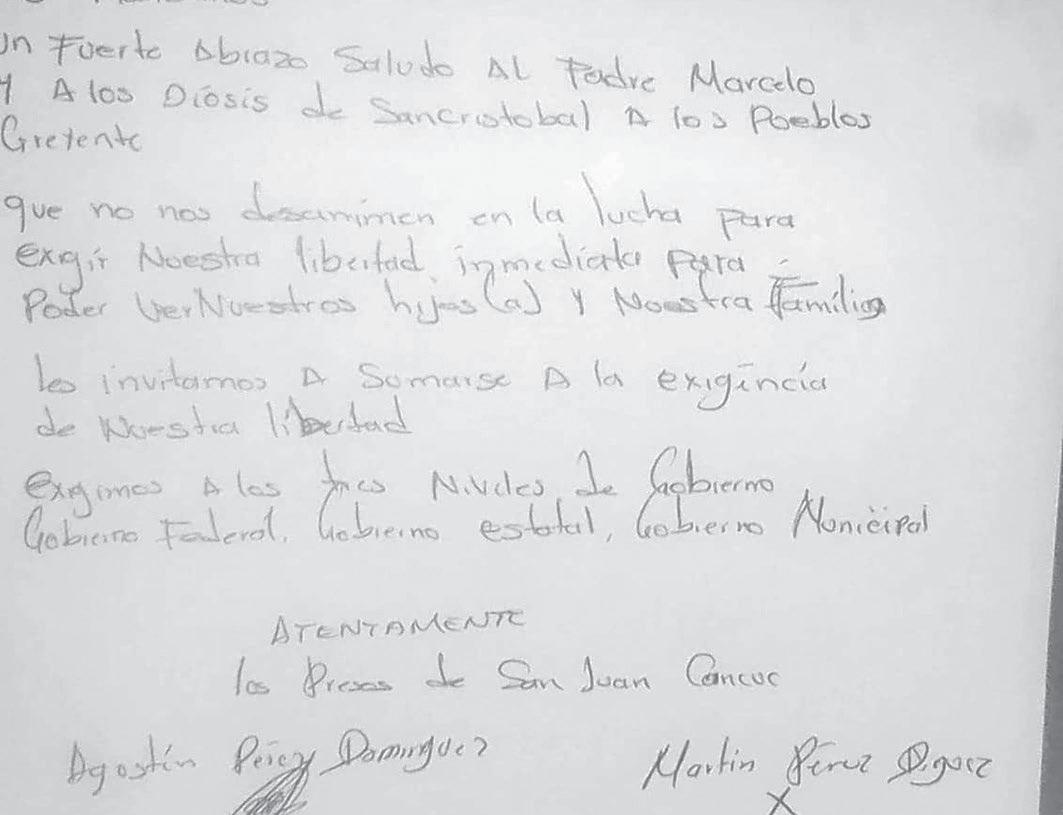 Un Fuerte Abrazo Saludo AL Padre Marcelo
Y A los Diosis de Sancristobal A los Poeblos
Gretente
que no nos desanimen en la lucha para
exigir Nuestra libertad inmediata para
Poder Ver Nuestros hijos(a) Y Nuestra familia
les invitamos A Somarse A la exigencia
de Nuestra libertad
exigimos A los tres Niveles de Gobierno
Gobierno Federal, Gobierno estatal, Gobierno Municipal
ATENTAMENTE
los Presos de San Juan Cancuc
Agostín Pérez Dominguez
Martin Pérez
X